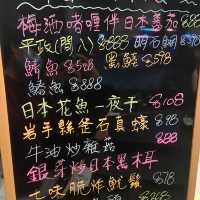 梅酒啫喱伴日本蕃茄 $88
平政(間八) $888 明石鯛 $898
鯵魚 $858 黑鯥 $898
鰆魚 $888
日本花魚一夜干 $108
岩手縣釜石真蠔 $98
牛油炒雜菇 $88
銀芽炒日本黑木耳
七味脆炸魷鬚 $78